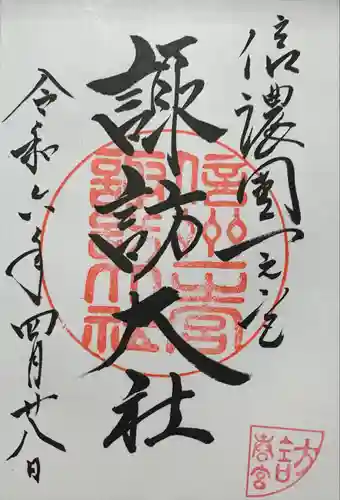 信濃國一之宮
諏訪大社
令和六年四月廿八日
信州一之宮
諏訪大社
訪
春宮